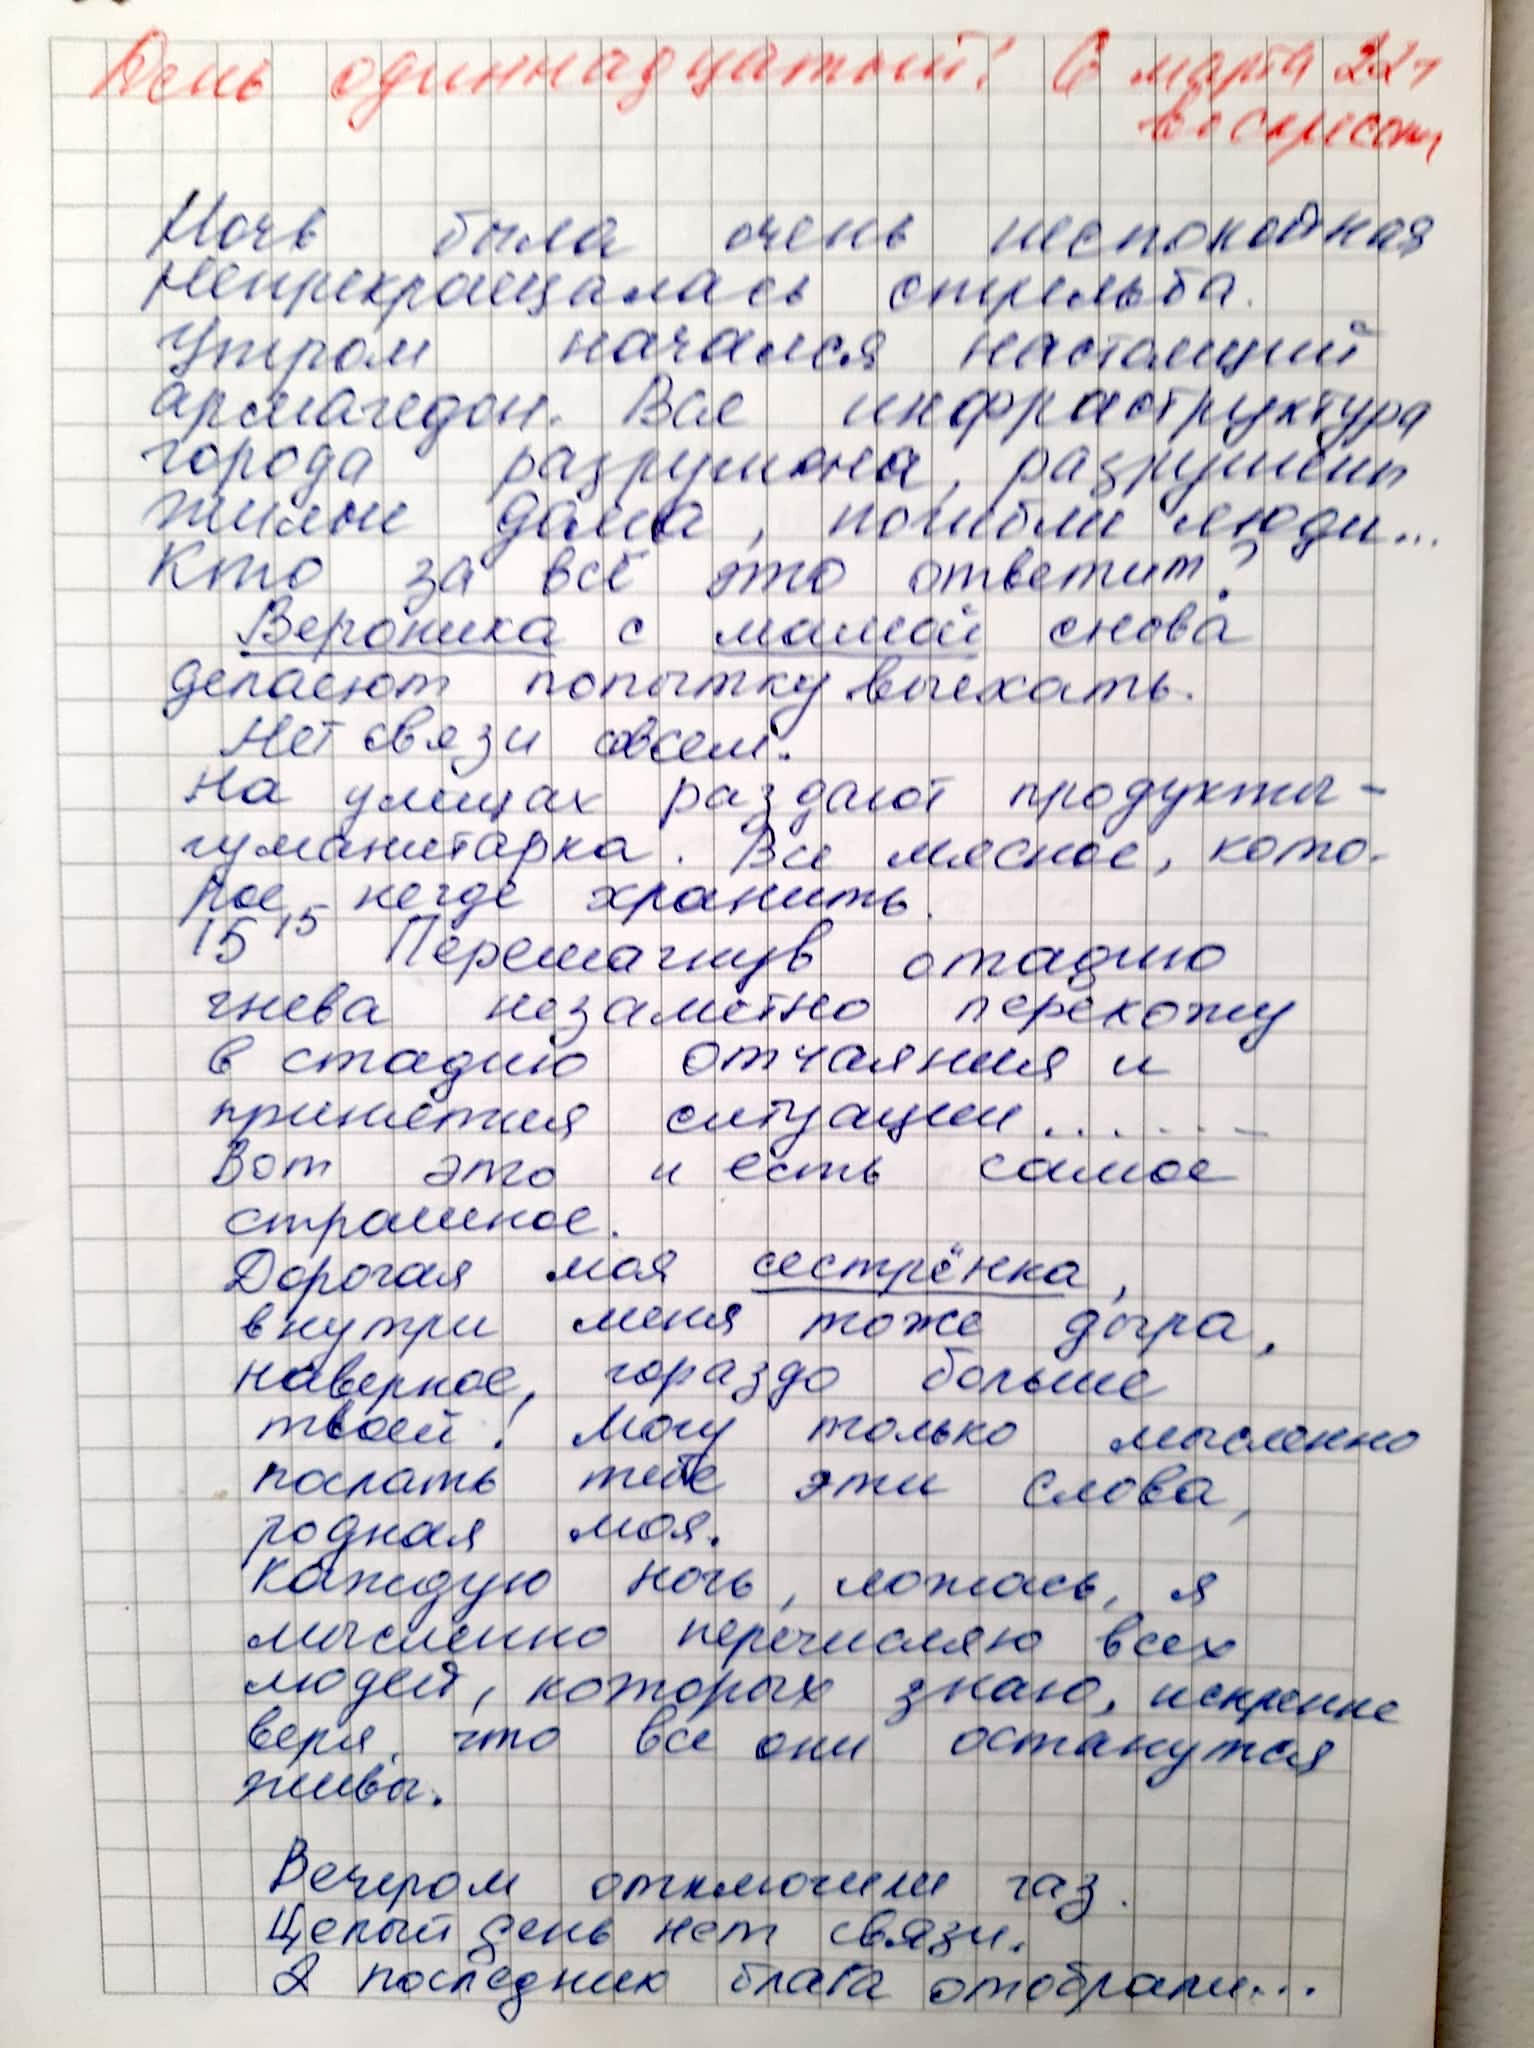 День одиннадцатый! 6 марта 22г
воскресен,
Ночь была очень неспокойная
Непрекращалась стрельба.
Утром начался настоящий
армагедон. Вся инфраструктура
города разрушена, разрушены
жилые дома, погибли люди...
Кто за всё это ответит?
Вероника с мамой снова
делают попытку выехать.
Нет связи совсем.
На улицах раздают продукты-
гуманитарка. Все мясное, кото-
рое негде хранить.
15 15 Перемагнув стадию
гнева незаметно перехожу
в стадию отчаяния и
принятия ситуации.......
Вот это и есть самое
страшное.
Дорогая моя сестрёнка,
внутри меня тоже дыра,
наверное, гораздо больше
твоей! Могу только мысленно
послать тебе эти слова,
родная моя.
Каждую ночь, ложась, я
мысленно перечисляю всех
людей, которых знаю, искренне
веря, что все они останутся
живы.
Вечером отключили газ.
Целый день нет связи.
2 последних блага отобрали...